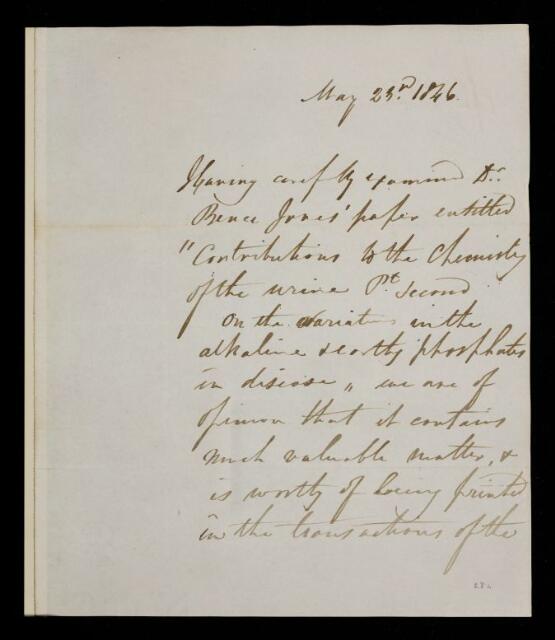 May 23rd. 1846.
Having carefully examined Dr.
Bence Jones' paper entitled
"Contributions to the Chemistry
of the urine Pt. Second
On the variations in the
alkaline & earthy phosphates
in disease" we are of
opinion that it contains
much valuable matter, &
is worthy of being printed
in the transactions of the